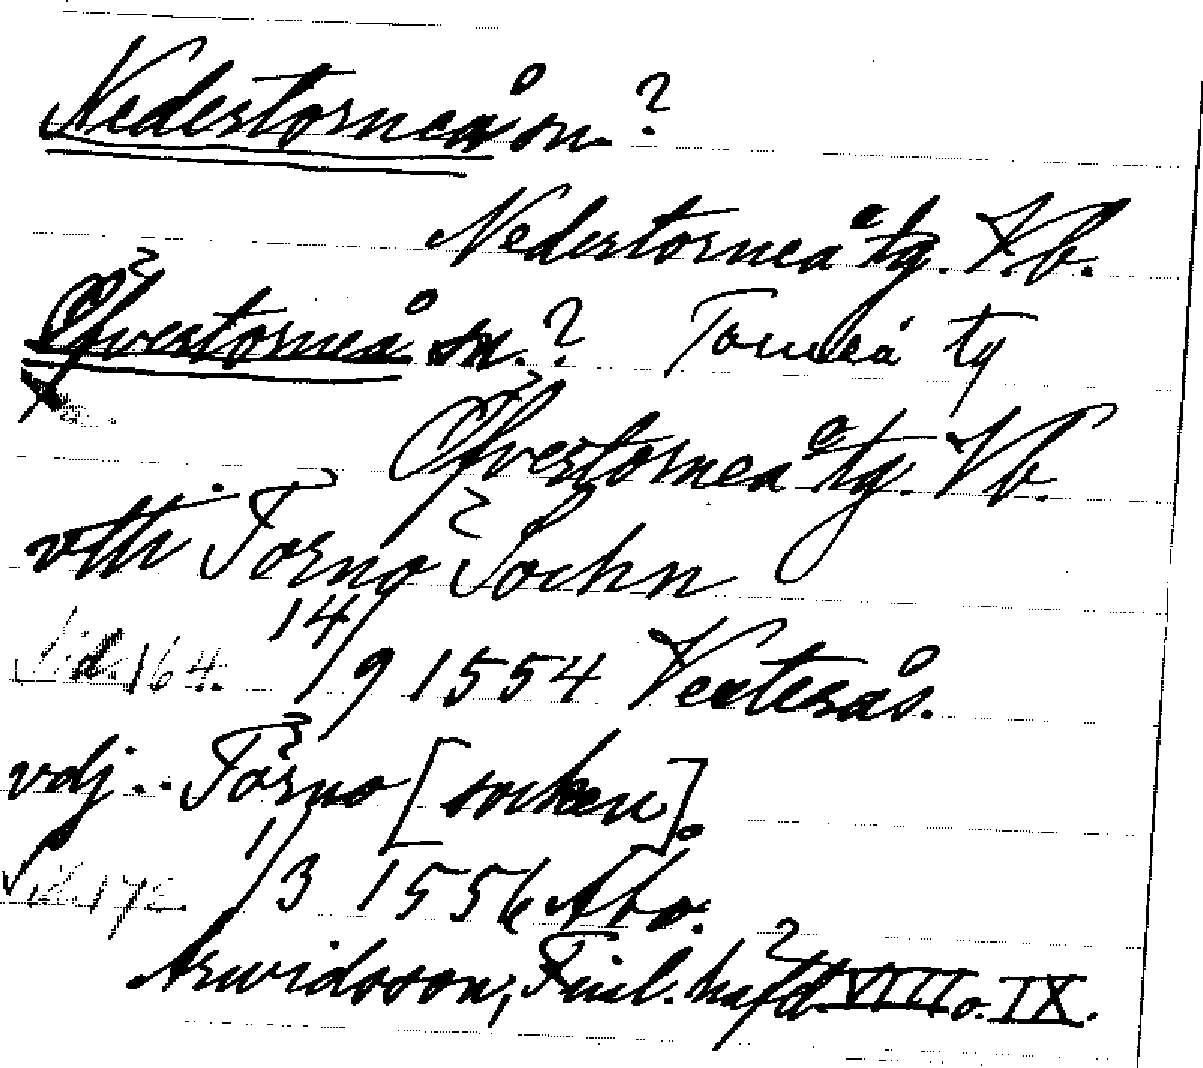 Nedertorneå sn. ?
Nedertorneå tg. Vb.
Öfvertorneå sn. ? Torneå tg
Öfvertorneå tg. Vb.
vtti Torno Sochn
Sid. 164. 14/9 1554 Vesterås.
vdj .. Torno [socken].
Sid. 172. 1/3 1556 Åbo.
Arwidsson, Finl. häfd. VIII o. IX.